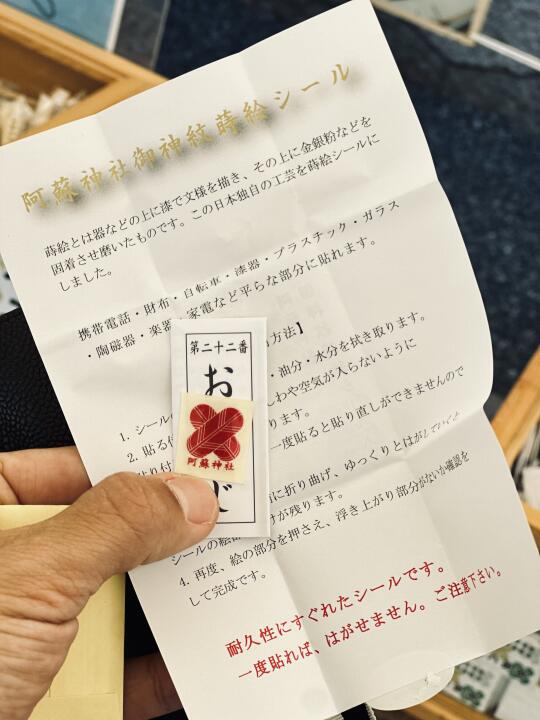 阿蘇神社御神紋蒔絵シール
蒔絵とは器などの上に漆で文様を描き、その上に金銀粉などを
固着させ磨いたものです。この日本独自の工芸を蒔絵シールに
しました。
携帯電話・財布・自転車・漆器・プラスチック・ガラス
・陶磁器・楽器・家電など平らな部分に貼れます。
方法】
1. シールの
・油分・水分を拭き取ります。
2. 貼る
わや空気が入らないように
ります。
一度貼ると貼り直しができませんので
に折り曲げ、ゆっくりとはがしていくと
シールの絵
けが残ります。
4. 再度、絵の部分を押さえ、浮き上がり部分がないか確認を
して完成です。
耐久性にすぐれたシールです。
一度貼れば、はがせません。ご注意下さい。
第二十二番
お
阿蘇神社